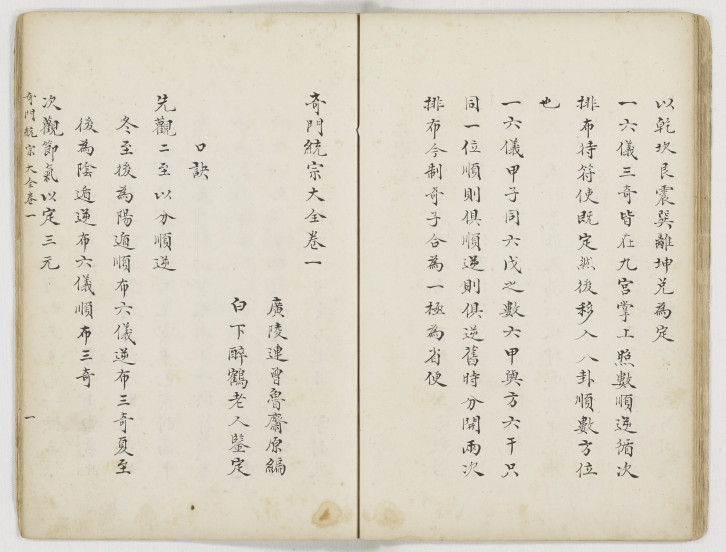 以乾坎艮震巽離坤兌為定
一六儀三奇皆在九宮掌上照數順逆循次
排布待符使既定然後移入八卦順數方位
也
一六儀甲子同六戊之數六甲與方六干只
同一位順則俱順逆則俱逆舊時分開兩次
排布今制奇子合為一極為省便
奇門統宗大全卷一
廣陵連曾魯齋原編
白下醉鶴老人鑒定
口訣
先觀二至以分順逆
冬至後為陽遁順布六儀逆布三奇夏至
後為陰遁逆布六儀順布三奇
次觀節氣以定三元
奇門統宗大全卷一
一